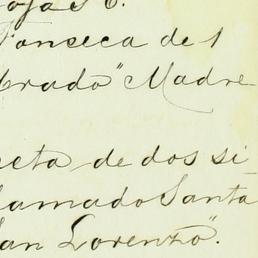 ojas C.
Fonseca del
brado" Madre
ecta de dos si
lamado Santa
San Lorenzo".